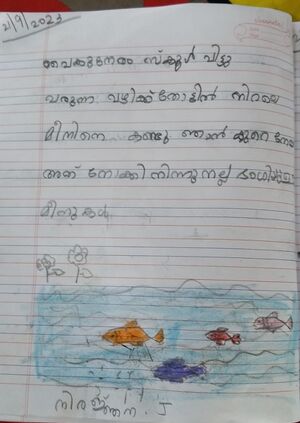 21/9/2023
വൈകുന്നേരം സ്ക്കൂൾ വിട്ടു
വരുന്ന വഴിക്ക് തോട്ടിൽ നിറയെ
മീനിനെ കണ്ടു ഞാൻ കുറെ നേരം
അത് നോക്കി നിന്നു നല്ല ഭംഗിയുള്ള
മീനുകൾ
നിരഞ്ജന. J